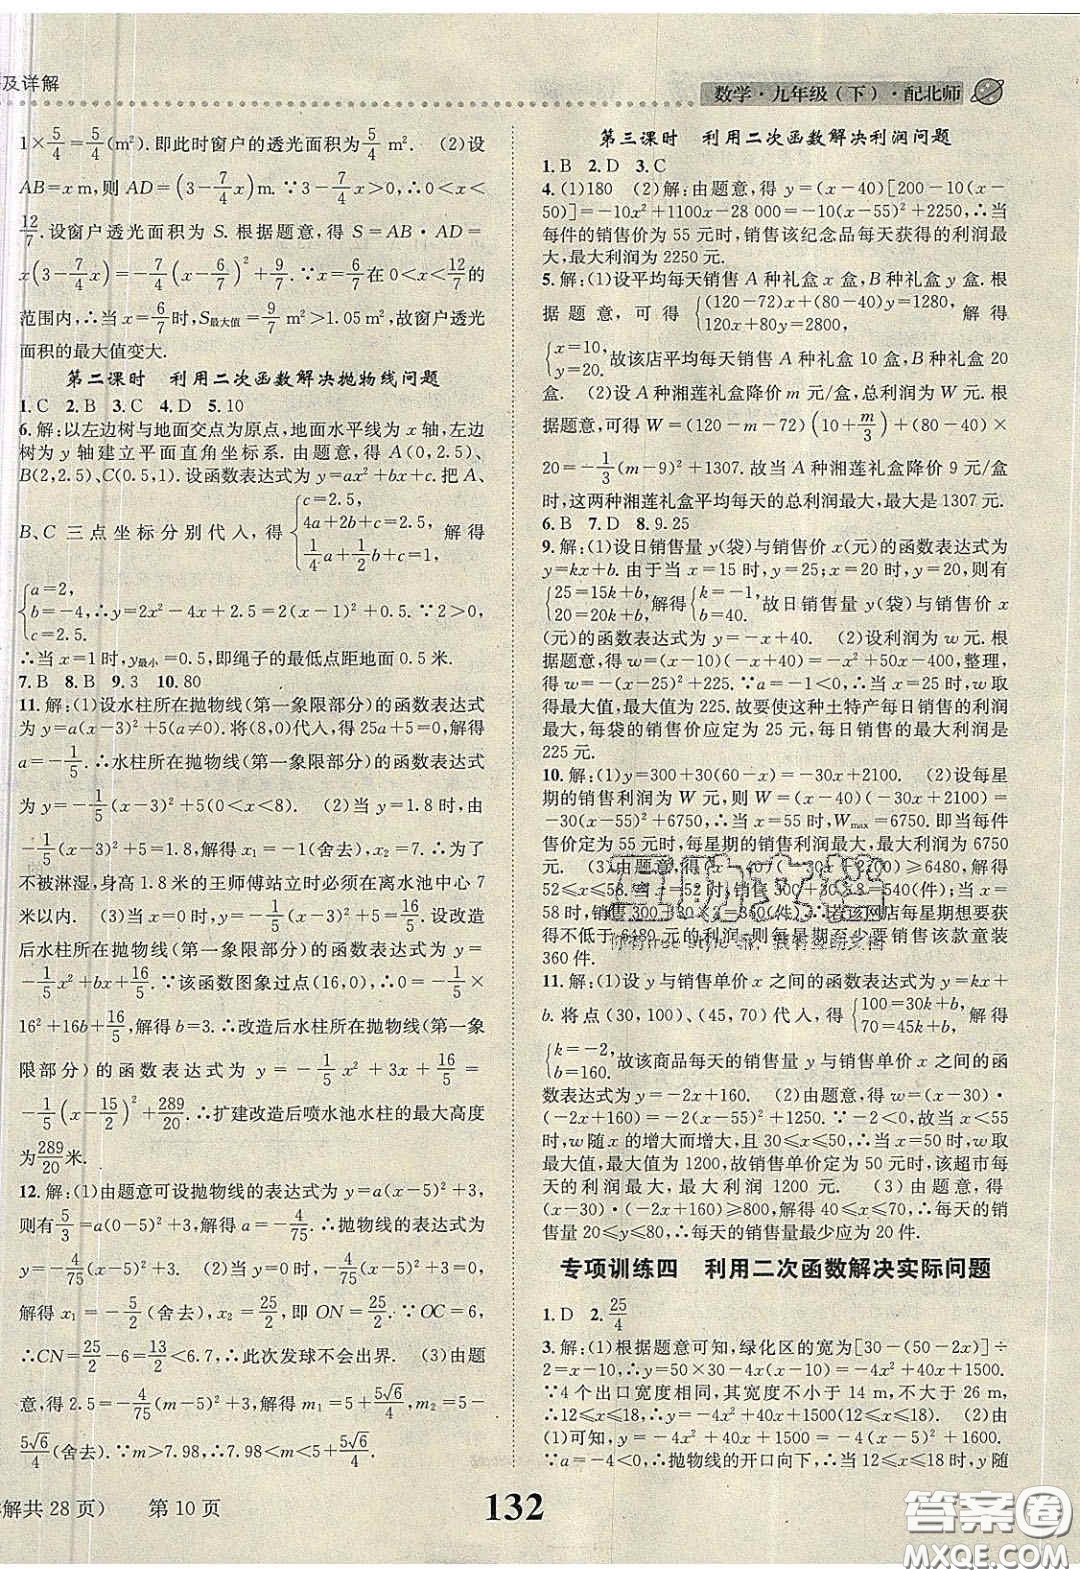 及详解
数学·九年级(下)·配北师
1×5/4=5/4(m²).即此时窗户的透光面积为5/4 m².　(2)设
AB=x m,则 AD=(3-7/4x)m.∵3-7/4x>0,∴0<x<
12/7.设窗户透光面积为 S.根据题意,得 S=AB·AD=
x(3-7/4x)=-7/4(x-6/7)²+9/7.∵x=6/7在0<x<12/7的
范围内,∴当 x=6/7时,S最大值=9/7 m²>1.05 m²,故窗户透光
面积的最大值变大.
第二课时　利用二次函数解决抛物线问题
1.C　2.B　3.C　4.D　5.10
6.解:以左边树与地面交点为原点,地面水平线为 x 轴,左边
树为 y 轴建立平面直角坐标系.由题意,得 A(0,2.5)、
B(2,2.5)、C(0.5,1).设函数表达式为 y=ax²+bx+c.把 A、
B、C 三点坐标分别代入,得{c=2.5, 4a+2b+c=2.5, 1/4a+1/2b+c=1, 解得
{a=2, b=-4, c=2.5. ∴y=2x²-4x+2.5=2(x-1)²+0.5.∵2>0,
∴当 x=1时,y最小=0.5,即绳子的最低点距地面 0.5 米.
7.B　8.B　9.3　10.80
11.解:(1)设水柱所在抛物线(第一象限部分)的函数表达式
为 y=a(x-3)²+5(a≠0).将(8,0)代入,得 25a+5=0.解得
a=-1/5.∴水柱所在抛物线(第一象限部分)的函数表达式
为 y=-1/5(x-3)²+5(0<x<8).　(2)当 y=1.8 时,由
-1/5(x-3)²+5=1.8,解得 x₁=-1(舍去),x₂=7.∴为了
不被淋湿,身高 1.8 米的王师傅站立时必须在离水池中心 7
米以内.　(3)当 x=0 时,y=-1/5(x-3)²+5=16/5.设改造
后水柱所在抛物线(第一象限部分)的函数表达式为 y=
-1/5x²+bx+16/5.∵该函数图象过点(16,0),∴0=-1/5×
16²+16b+16/5,解得 b=3.∴改造后水柱所在抛物线(第一象
限部分)的函数表达式为 y=-1/5x²+3x+16/5=
-1/5(x-15/2)²+289/20.∴扩建改造后喷水池水柱的最大高度
为289/20米.
12.解:(1)由题意可设抛物线的表达式为 y=a(x-5)²+3,
则有5/3=a(0-5)²+3.解得 a=-4/75.∴抛物线的表达式为
y=-4/75(x-5)²+3.　(2)当 y=0 时,-4/75(x-5)²+3=0,
解得 x₁=-5/2(舍去),x₂=25/2,即 ON=25/2.∵OC=6,
∴CN=25/2-6=13/2<7,∴此次发球不会出界.　(3)由题
意,得 2.5=-4/75(m-5)²+3.解得 m₁=5+5√6/4,m₂=5-
5√6/4(舍去).∵m>7.98,∴7.98<m<5+5√6/4.
第三课时　利用二次函数解决利润问题
1.B　2.D　3.C
4.(1)180　(2)解:由题意,得 y=(x-40)[200-10(x-
50)]=-10x²+1100x-28 000=-10(x-55)²+2250,∴当
每件的销售价为 55 元时,销售该纪念品每天获得的利润最
大,最大利润为 2250 元.
5.解:(1)设平均每天销售 A 种礼盒 x 盒,B 种礼盒 y 盒.根
据题意,可得{(120-72)x+(80-40)y=1280, 120x+80y=2800, 解得
{x=10, y=20. 故该店平均每天销售 A 种礼盒 10 盒,B 种礼盒 20
盒.　(2)设 A 种湘莲礼盒降价 m 元/盒,总利润为 W 元.根
据题意,可得 W=(120-m-72)(10+m/3)+(80-40)×
20=-1/3(m-9)²+1307.故当 A 种湘莲礼盒降价 9 元/盒
时,这两种湘莲礼盒平均每天的总利润最大,最大是 1307 元.
6.B　7.D　8.9.25
9.解:(1)设日销售量 y(袋)与销售价 x(元)的函数表达式为
y=kx+b.由于当 x=15 时,y=25;当 x=20 时,y=20,得
{25=15k+b, 20=20k+b, 解得{k=-1, b=40. 故日销售量 y(袋)与销售价 x
(元)的函数表达式为 y=-x+40.　(2)设利润为 w 元.根
据题意,得 w=(x-10)(-x+40)=-x²+50x-400,整理,
得 w=-(x-25)²+225.∵a=-1<0,∴当 x=25 时,w 取得
最大值,最大值为 225.故要使这种土特产每日销售的利润
最大,每袋的销售价应定为 25 元,每日销售的最大利润是
225 元.
10.解:(1)y=300+30(60-x)=-30x+2100.　(2)设每星
期的销售利润为 W 元,则 W=(x-40)(-30x+2100)=
-30(x-55)²+6750,∴当 x=55 时,Wmax=6750.即当每件
售价定为 55 元时,每星期的销售利润最大,最大利润 6750
元.　(3)由题意,得(x-40)(-30x+2100)≥6480,解得
52≤x≤58.当 x=52 时,销售 300+30×8=540(件);当 x=
58 时,销售 300+30×2=360(件).∴若该网店每星期想要获
得不低于 6480 元的利润,则每星期至少要销售该款童装
360 件.
11.解:(1)设 y 与销售单价 x 之间的函数表达式为 y=kx+
b.将点(30,100)、(45,70)代入,得{100=30k+b, 70=45k+b, 解得
{k=-2, b=160. 故该商品每天的销售量 y 与销售单价 x 之间的函
数表达式为 y=-2x+160.　(2)由题意,得 w=(x-30)·
(-2x+160)=-2(x-55)²+1250.∵-2<0,故当 x<55
时,w 随 x 的增大而增大,且 30≤x≤50,∴当 x=50 时,w有
最大值,最大值为 1200,故销售单价定为 50 元时,该超市每
天的利润最大,最大利润 1200 元.　(3)由题意,得
(x-30)·(-2x+160)≥800,解得 40≤x≤70,∴每天的销
售量 20≤y≤80,∴每天的销售量最少应为 20 件.
专项训练四　利用二次函数解决实际问题
1.D　2.25/4
3.解:(1)根据题意可知,绿化区的宽为[30-(50-2x)]÷
2=x-10,∴y=50×30-4x(x-10)=-4x²+40x+1500.
∵4 个出口宽度相同,其宽度不小于 14 m,不大于 26 m,
∴12≤x≤18,∴y=-4x²+40x+1500(12≤x≤18).　(2)由
(1)可知,y=-4x²+40x+1500=-4(x-5)²+1600.
∵a=-4<0,∴抛物线的开口向下,∴当 12≤x≤18 时,y 随
解共 28 页)　第 10 页
132
答案圈
MXQE.COM